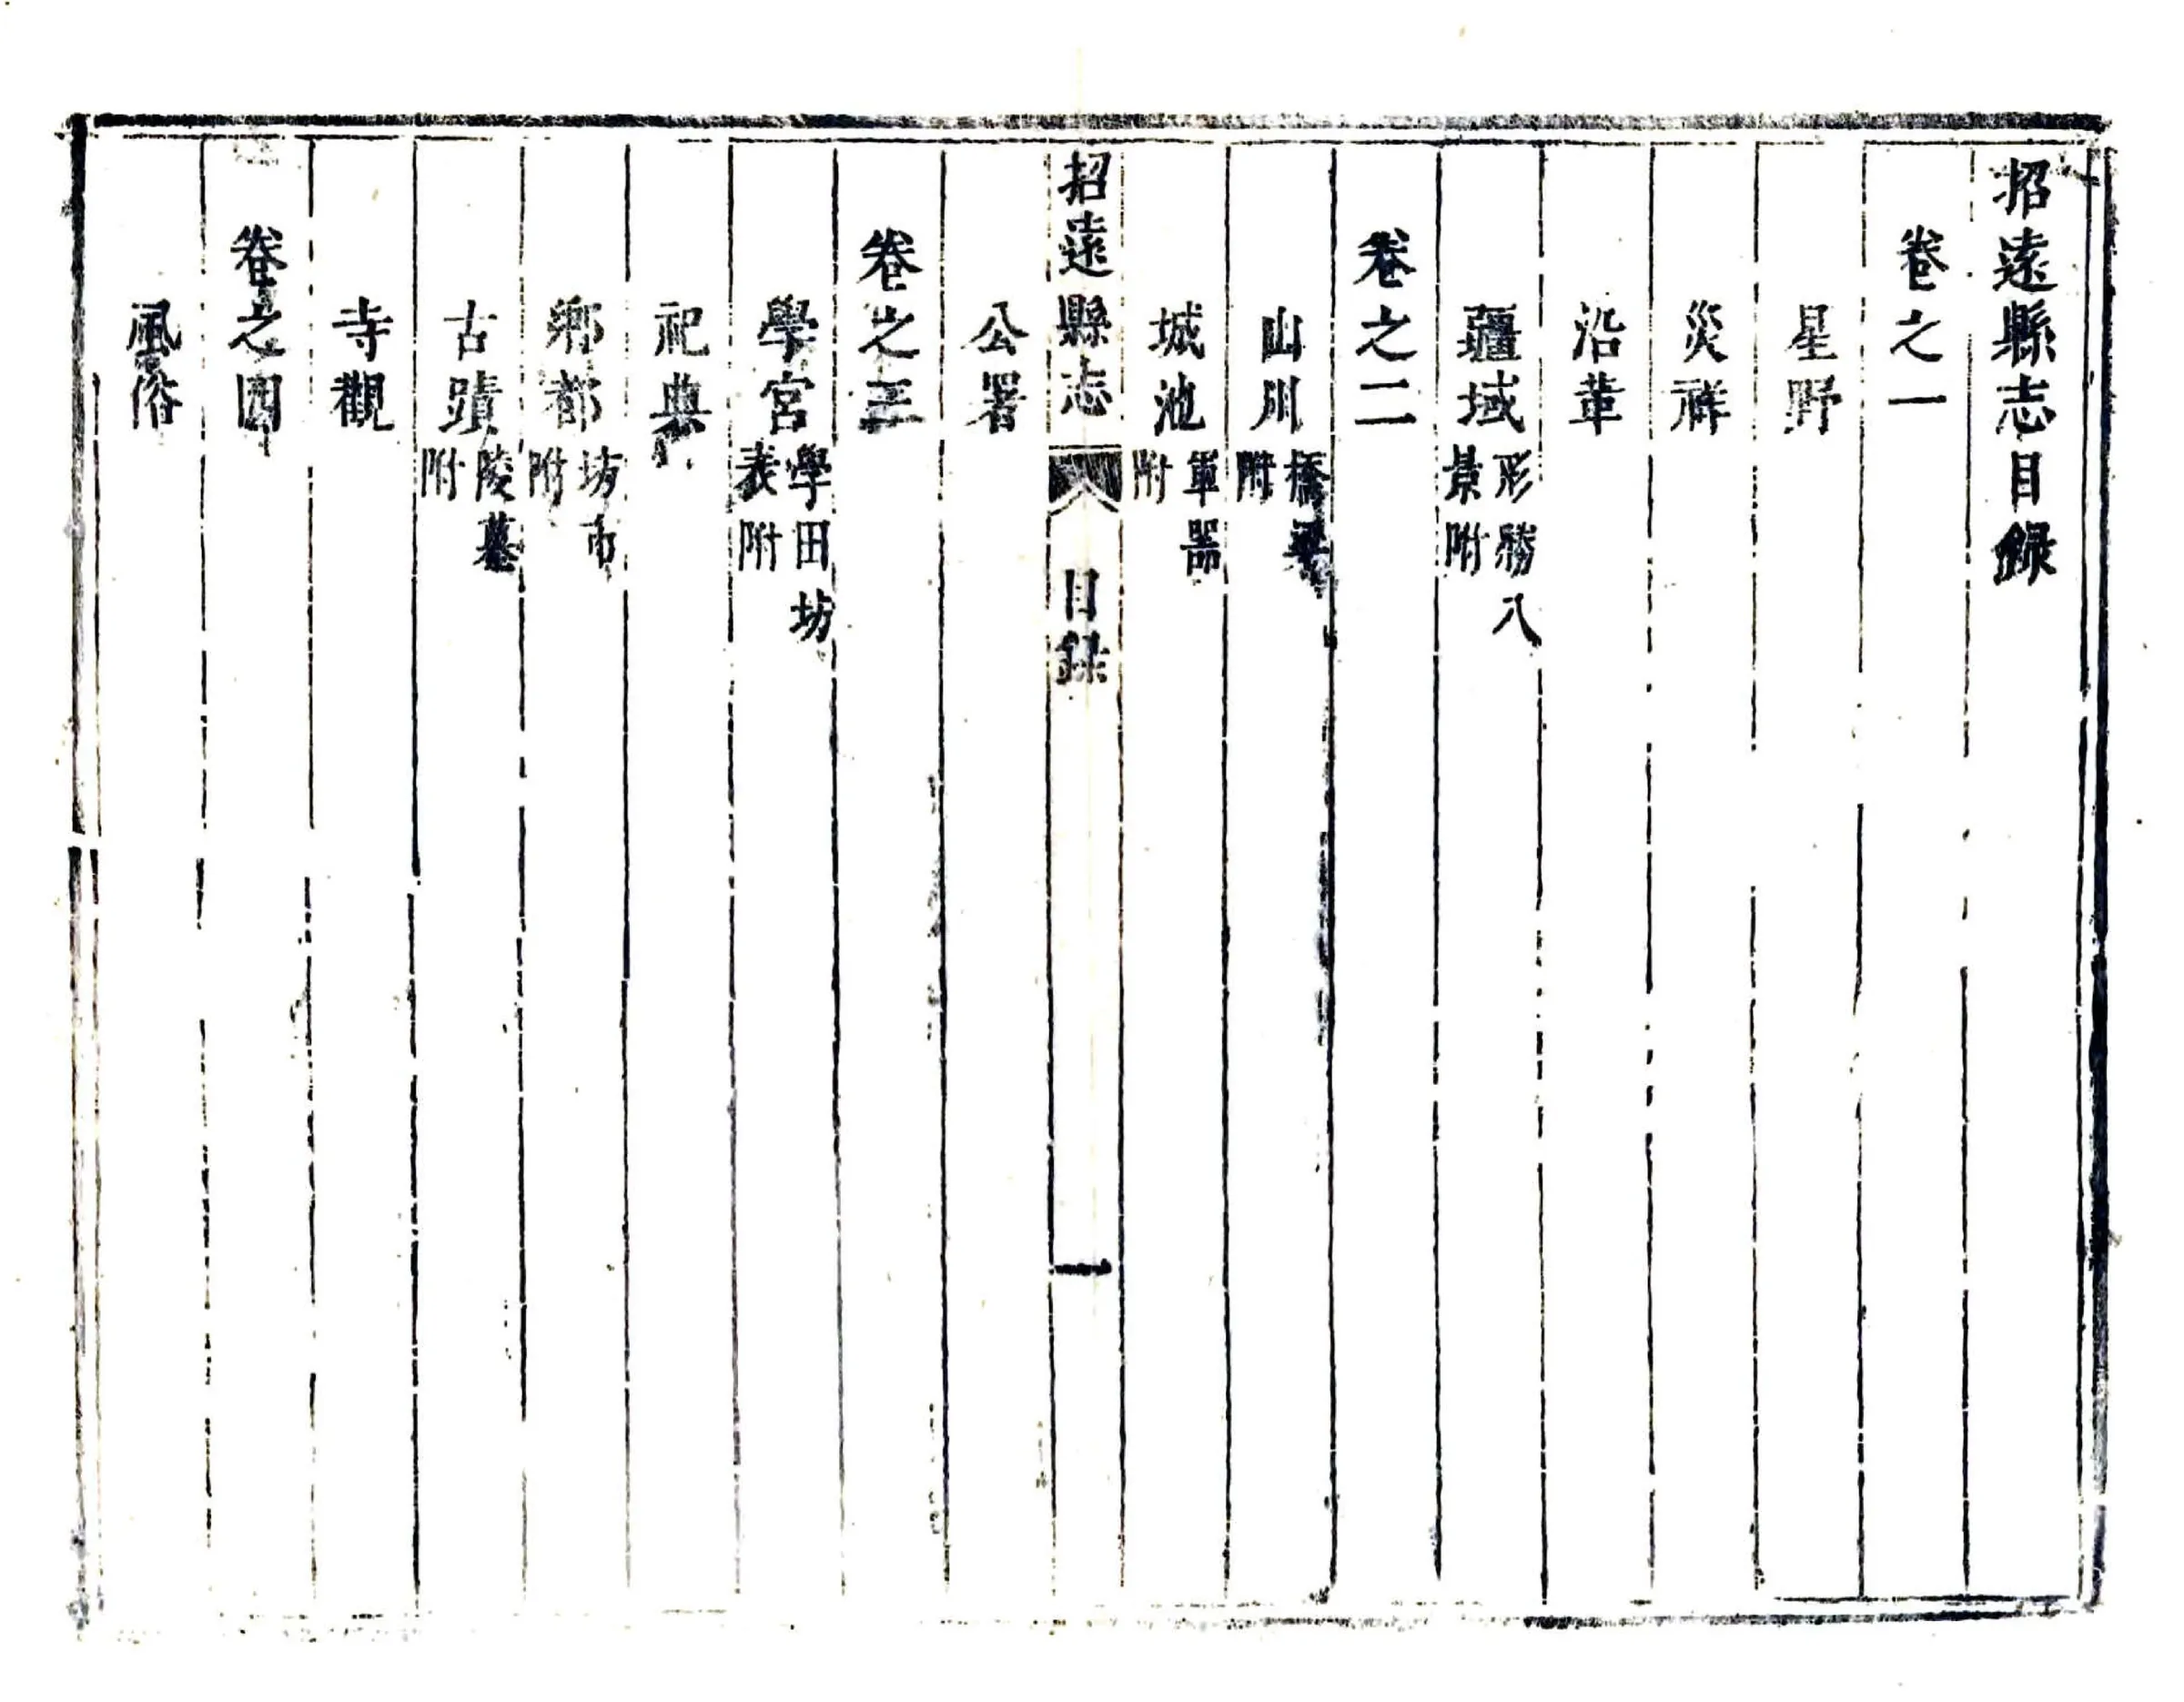 招遠縣志目録
卷之一
星野
災祥
沿革
疆域形勝八景附
卷之二
山川橋梁附
城池軍器附
招遠縣志 目録 一
公署
卷之三
學宮學田坊表附
祀典
鄉都坊市附
古蹟陵墓附
寺觀
卷之四
風俗